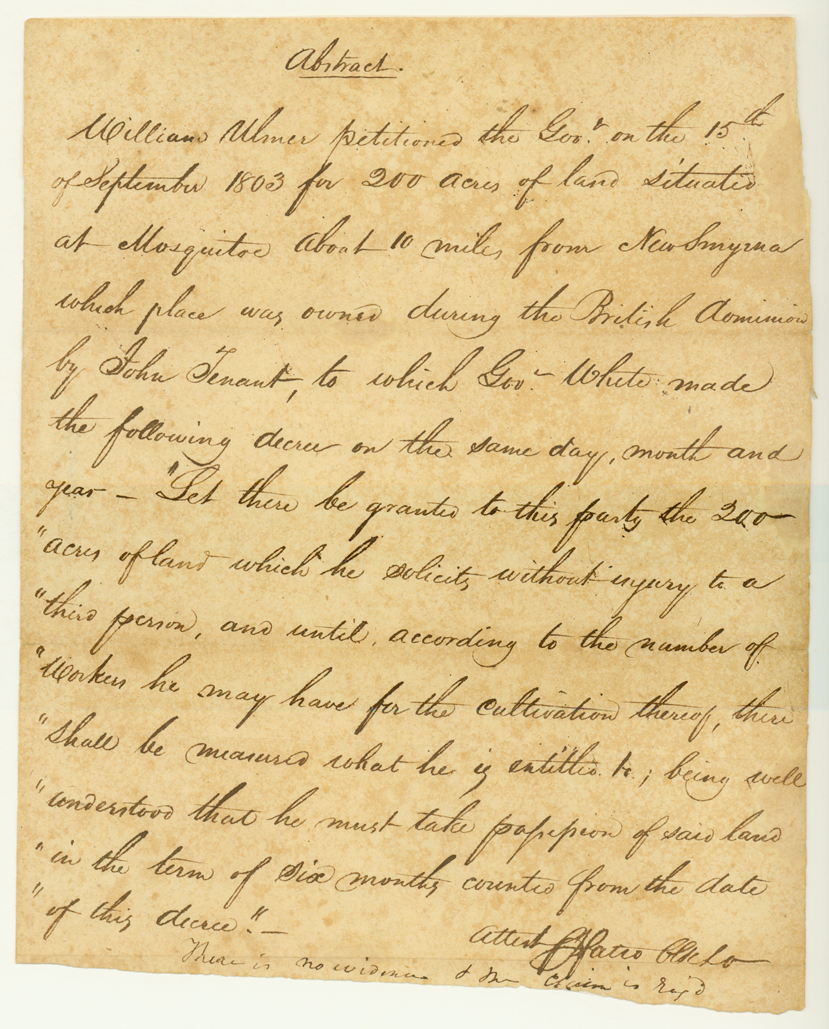 Abstract.
William Ulmer petitioned the Gov.r on the 15th
of September 1803 for 200 acres of land situated
at Mosquitoe about 10 miles from New Smyrna
which place was owned during the British dominion
by John Tenant, to which Gov.r White made
the following decree on the same day, month and
year – "Let there be granted to this party the 200
"acres of land which he solicits without injury to a
"third person, and until, according to the number of
"workers he may have for the cultivation thereof, there
"shall be measured what he is entitled to; being well
"understood that he must take possession of said land
"in the term of six months counted from the date
"of this decree." –
Attest
There is no evidence & the claim is rej'd